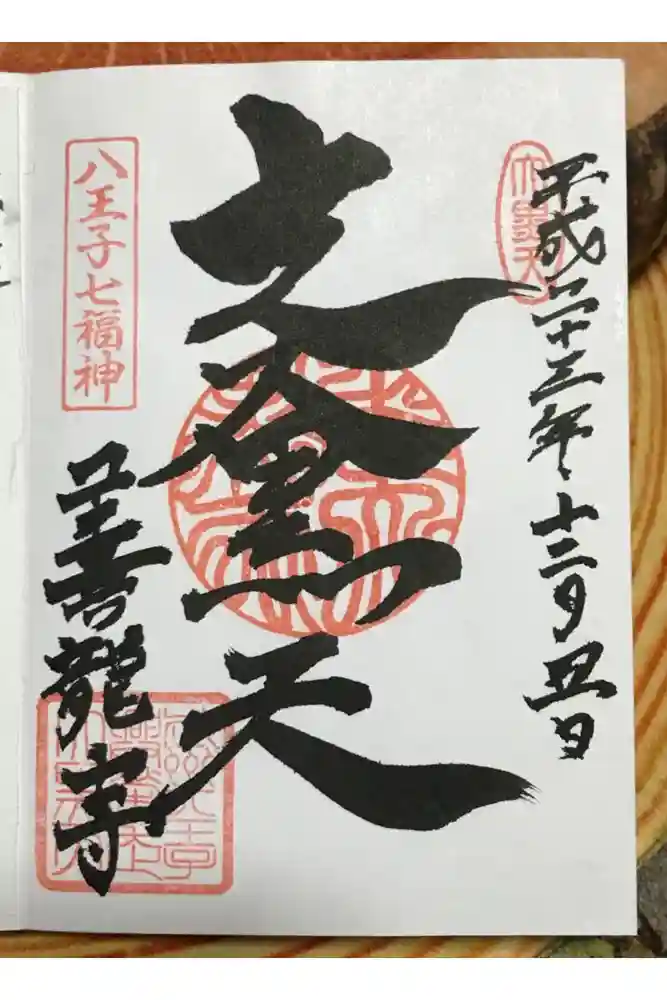 大黒天
平成二十三年十二月丑日
走大黒天
八王子七福神
善龍寺